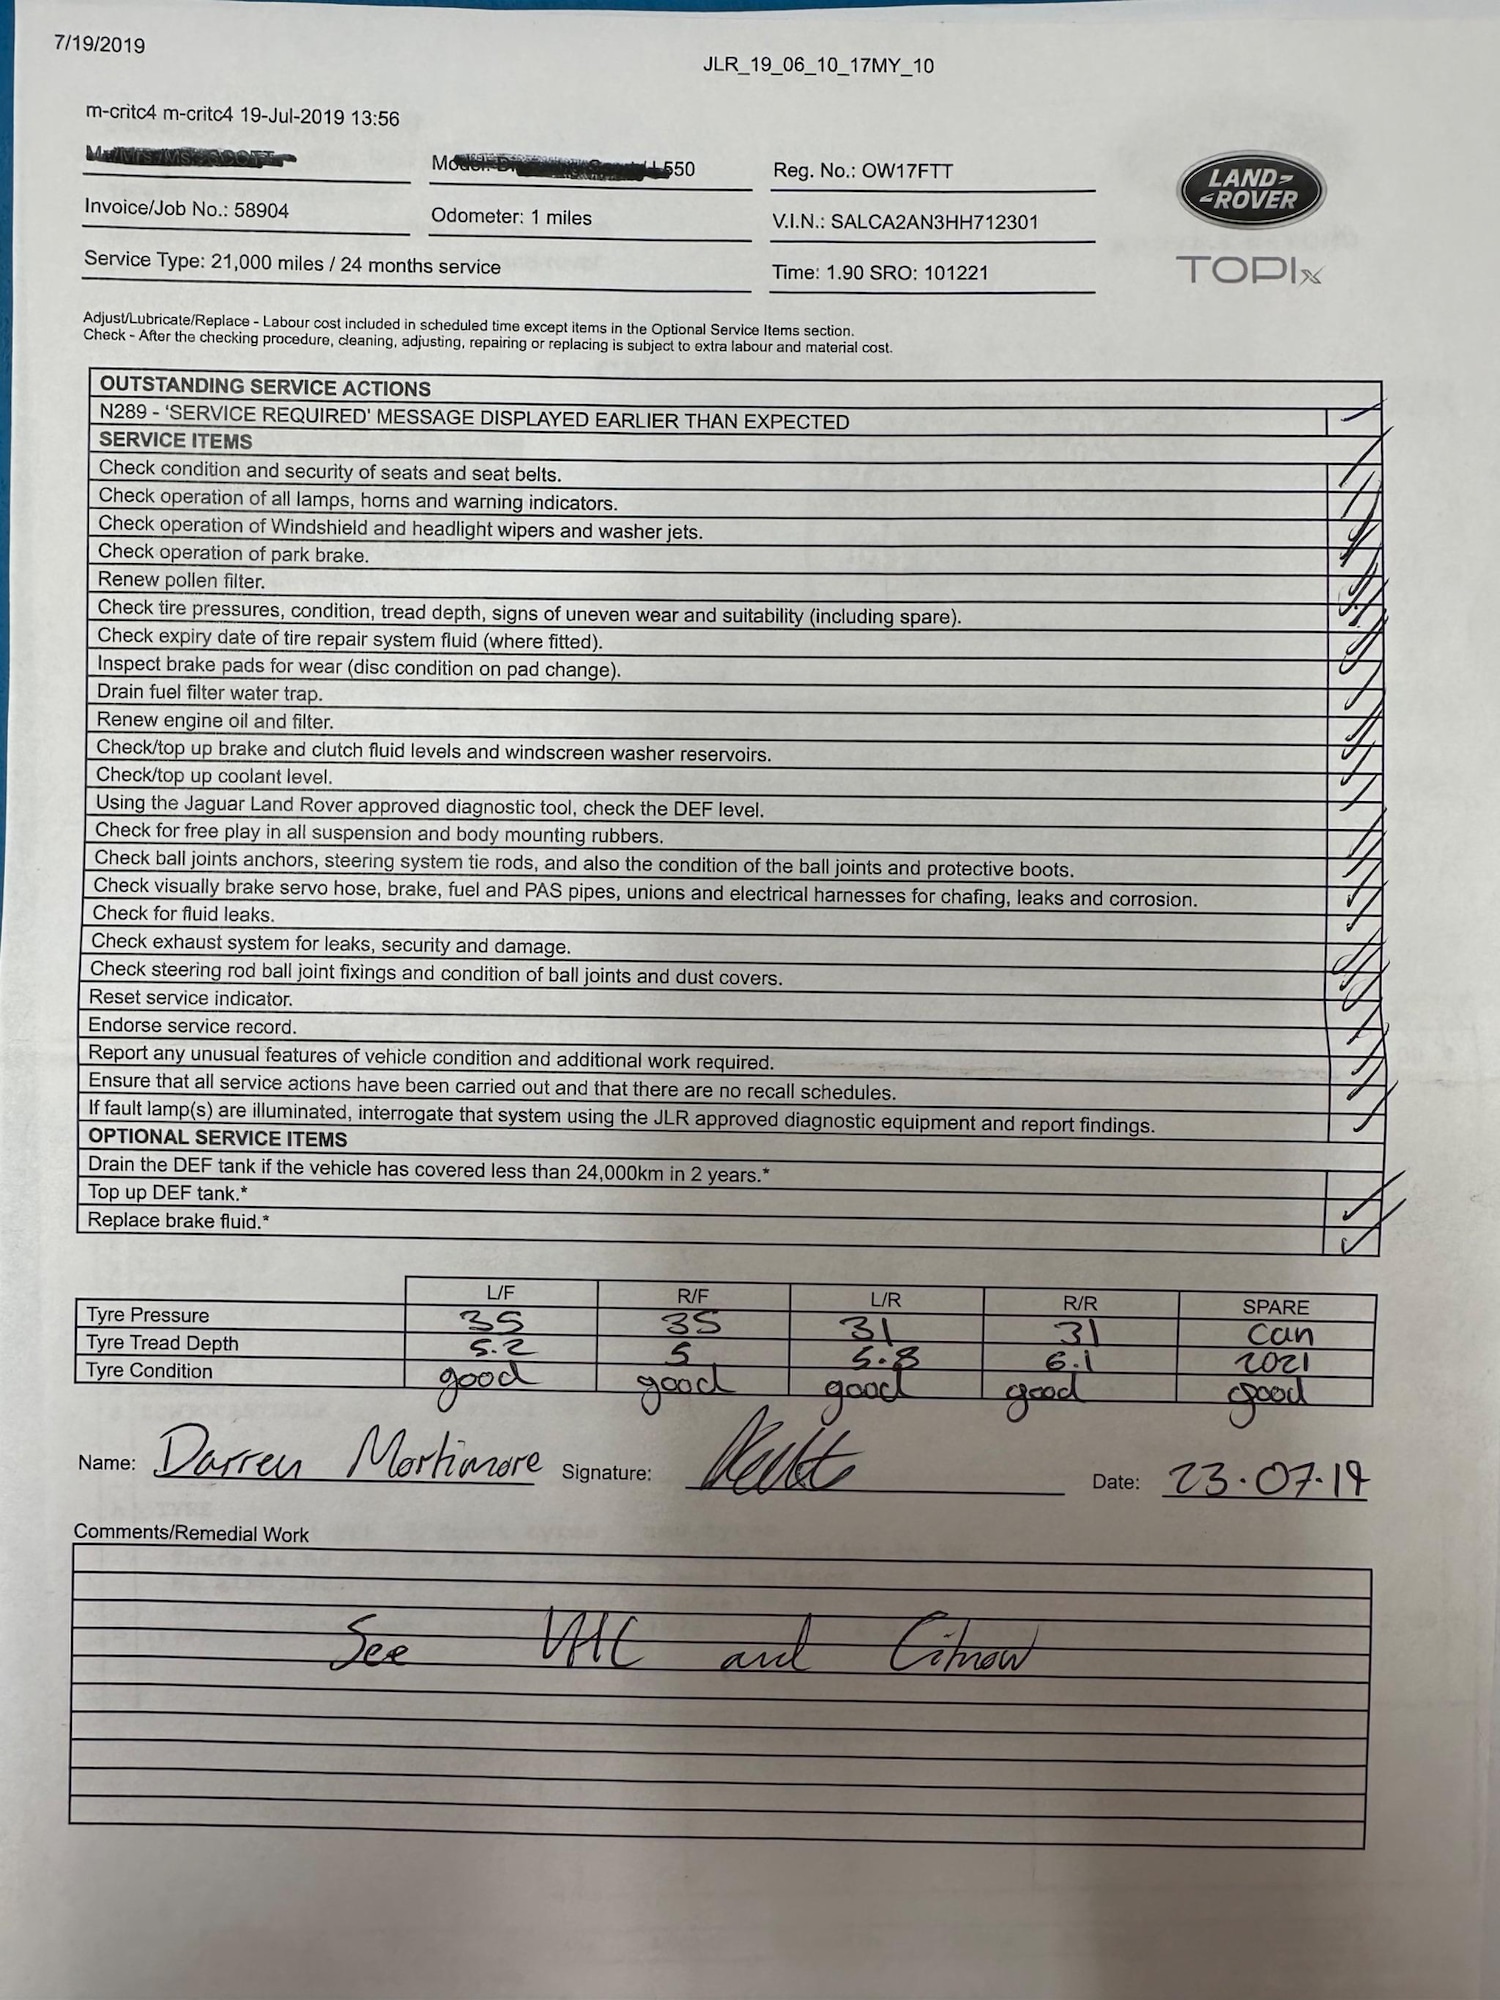 7/19/2019
JLR_19_06_10_17MY_10
m-critc4 m-critc4 19-Jul-2019 13:56
Mr/Mrs/Ms: SCOTT
Model: L550
Reg. No.: OW17FTT
LAND-
-ROVER
TOPIx
Invoice/Job No.: 58904
Odometer: 1 miles
V.I.N.: SALCA2AN3HH712301
Service Type: 21,000 miles / 24 months service
Time: 1.90 SRO: 101221
Adjust/Lubricate/Replace - Labour cost included in scheduled time except items in the Optional Service Items section.
Check - After the checking procedure, cleaning, adjusting, repairing or replacing is subject to extra labour and material cost.
OUTSTANDING SERVICE ACTIONS
N289 - 'SERVICE REQUIRED' MESSAGE DISPLAYED EARLIER THAN EXPECTED
SERVICE ITEMS
Check condition and security of seats and seat belts.
Check operation of all lamps, horns and warning indicators.
Check operation of Windshield and headlight wipers and washer jets.
Check operation of park brake.
Renew pollen filter.
Check tire pressures, condition, tread depth, signs of uneven wear and suitability (including spare).
Check expiry date of tire repair system fluid (where fitted).
Inspect brake pads for wear (disc condition on pad change).
Drain fuel filter water trap.
Renew engine oil and filter.
Check/top up brake and clutch fluid levels and windscreen washer reservoirs.
Check/top up coolant level.
Using the Jaguar Land Rover approved diagnostic tool, check the DEF level.
Check for free play in all suspension and body mounting rubbers.
Check ball joints anchors, steering system tie rods, and also the condition of the ball joints and protective boots.
Check visually brake servo hose, brake, fuel and PAS pipes, unions and electrical harnesses for chafing, leaks and corrosion.
Check for fluid leaks.
Check exhaust system for leaks, security and damage.
Check steering rod ball joint fixings and condition of ball joints and dust covers.
Reset service indicator.
Endorse service record.
Report any unusual features of vehicle condition and additional work required.
Ensure that all service actions have been carried out and that there are no recall schedules.
If fault lamp(s) are illuminated, interrogate that system using the JLR approved diagnostic equipment and report findings.
OPTIONAL SERVICE ITEMS
Drain the DEF tank if the vehicle has covered less than 24,000km in 2 years.*
Top up DEF tank.*
Replace brake fluid.*
L/F R/F L/R R/R SPARE
Tyre Pressure 35 35 31 31 can
Tyre Tread Depth 5.2 5 5.8 6.1 2021
Tyre Condition good good good good good
Name: Darren Mortimore Signature: Date: 23.07.19
Comments/Remedial Work
See VHC and Citnow